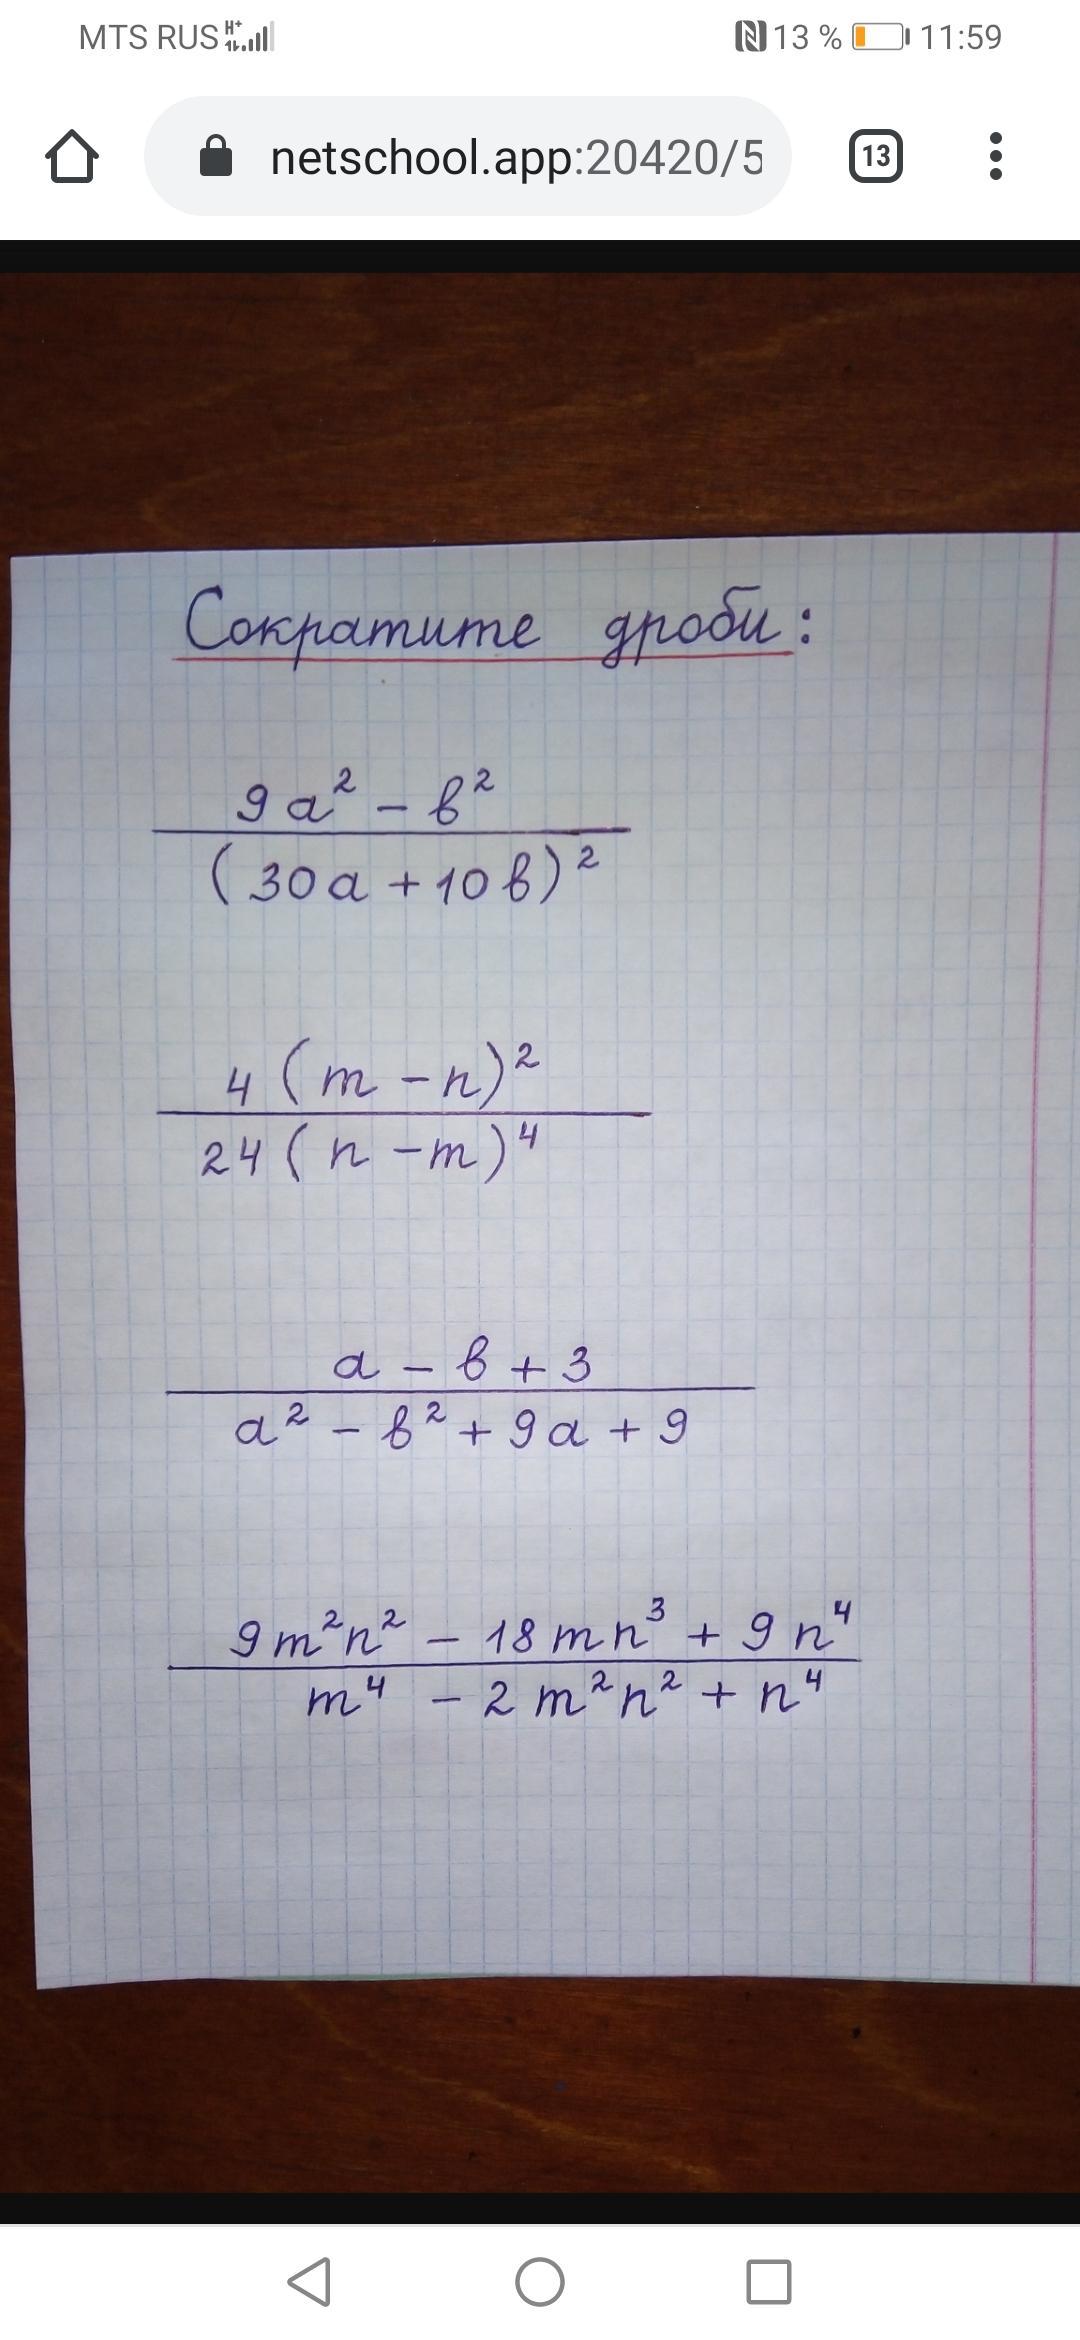 MTS RUS H+ 13 % 11:59
netschool.app:20420/5 13
Сократите дроби:
9a² - b²
(30a + 10b)²
4 (m - n)²
24 (n - m)⁴
a - b + 3
a² - b² + 9a + 9
9m²n² - 18mn³ + 9n⁴
m⁴ - 2m²n² + n⁴